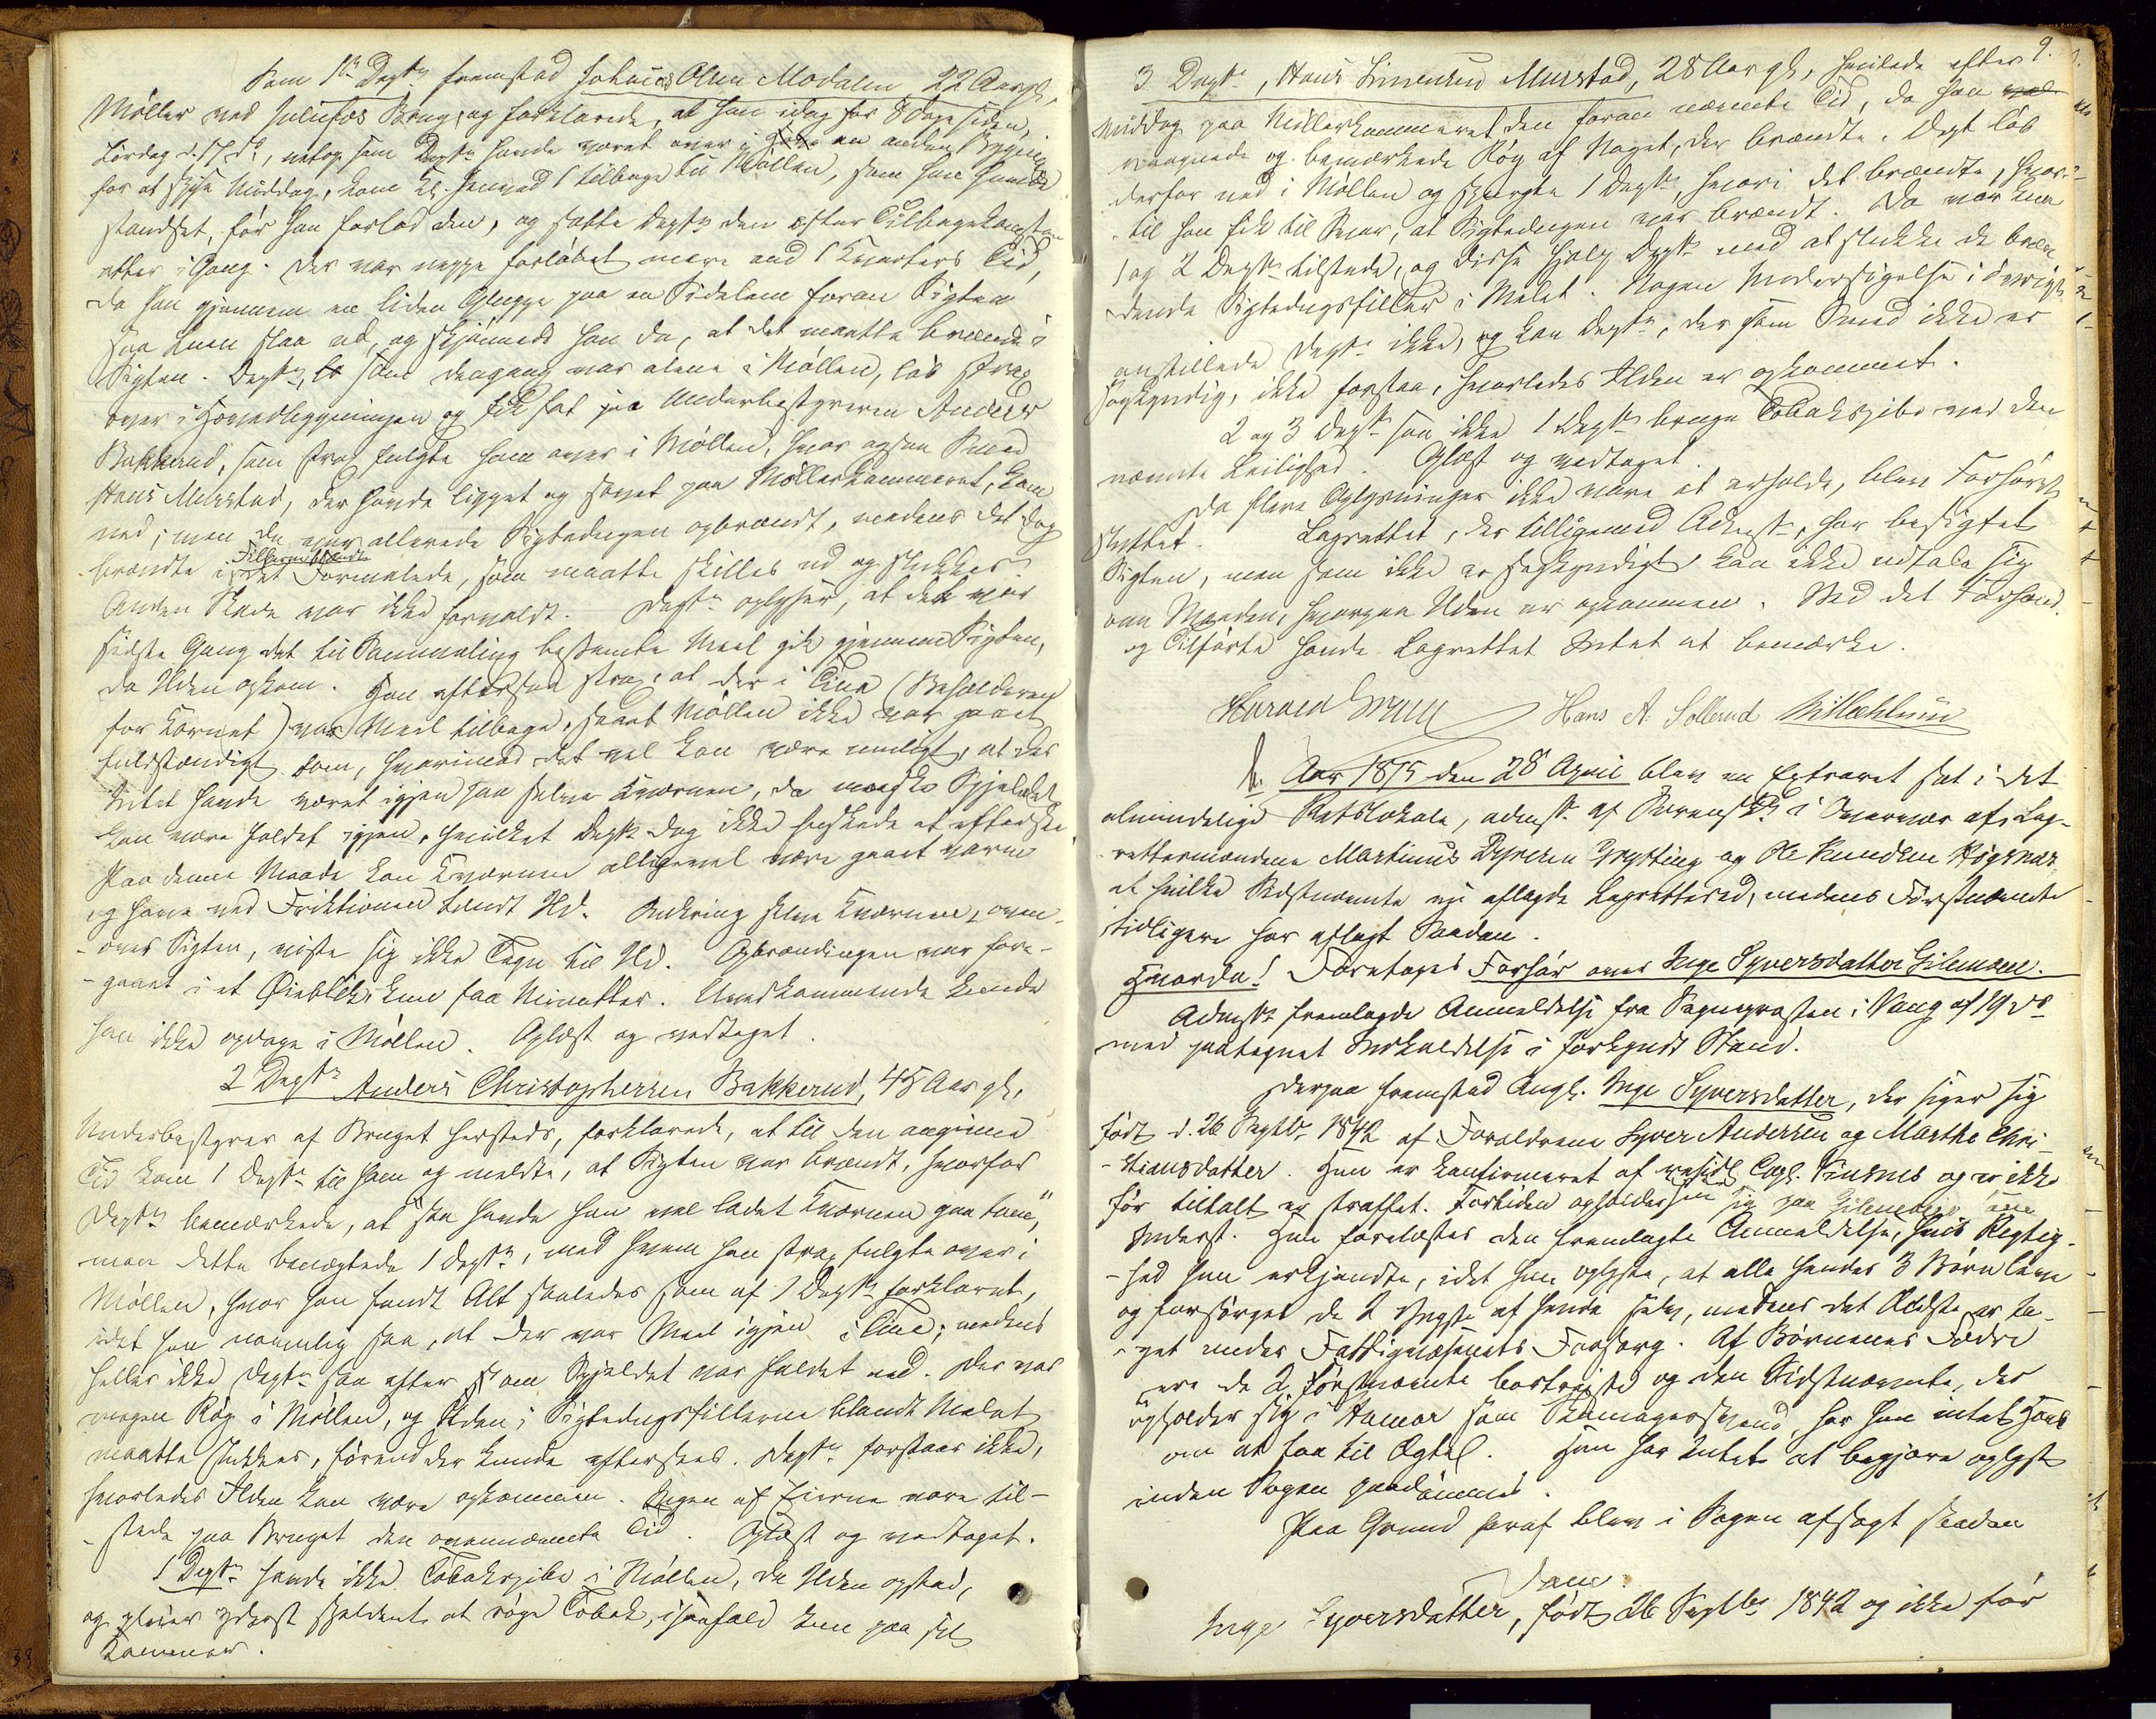 Som 1ste Depte fremstod Johannes Olsen Modalen, 22 Aar gl.,
Møller ved Julufos Brug, og forklarede, at han idag for 8 Dage siden,
Lørdag d. 17 ds, netop som Depte havde været over i en anden Bygning
for at spise Middag, kom Kl. henved 1 tilbage til Møllen, som han havde
standset, før han forlod den, og satte Depte den efter Tilbagekomsten
atter i Gang. Der var neppe forløbet mere end 1 Kvarters Tid,
da han gjennem en liden Glugge paa en Sidelem foran Sigten
saa Luen slaa ud, og skjønnede han da, at det maatte brænde i
Sigten. Depte, som dengang var alene i Møllen, løb strax
over i Hovedbygningen og fik fat paa Underbestyreren Anders
Bakkerud, som strax fulgte ham over i Møllen, hvor ogsaa Smed
Hans Murstad, der havde ligget og sovet paa Møllerkammeret, kom
ned; men da var allerede Sigtedugen opbrændt, medens det dog
Fillerne iblandt
brændte i det Formalede, som maatte skilles ud og slukkes.
Anden Skade var ikke forvoldt. Depte oplyser, at det var
sidste Gang det til Sammaling bestemte Meel gik gjennem Sigten,
da Ilden opkom. Han eftersaa strax, at der i Tina (Beholderen
for Kornet) var Meel tilbage, saaat Møllen ikke var gaaet
fuldstændigt tom, hvorimod det vel kan være muligt, at der
Intet havde været igjen paa selve Kværnen, da maaske Spjeldet
kan være faldet igjen, hvilket Depte dog ikke huskede at efterse.
Paa denne Maade kan Kværnen alligevel være gaaet varm
og have ved Friktionen tændt Ild. Omkring selve Kværnen, oven-
-over Sigten, viste sig ikke Tegn til Ild. Opbrændingen var fore-
-gaaet i et Øieblik, kun faa Minutter. Uvedkommende kunde
han ikke opdage i Møllen. Oplæst og vedtaget.
2 Depte Anders Christophersen Bakkerud, 45 Aar gl.,
Underbestyrer af Bruget hersteds, forklarede, at til den angivne
Tid kom 1 Depte til ham og meldte, at Sigten var brændt, hvorfor
Depte bemærkede, at „saa havde han vel ladet Kværnen gaa tom",
men dette benægtede 1 Depte, med hvem han strax fulgte over i
Møllen, hvor han fandt Alt saaledes som af 1 Depte forklaret,
idet han navnlig saa, at der var Meel igjen i Tina; medens
heller ikke Depte saa efter om Spjeldet var faldet ned. Der var
megen Røg i Møllen, og Ilden i Sigtedugsfillerne blandt Melet
maatte slukkes, førend der kunde eftersees. Depte forstaar ikke,
hvorledes Ilden kan være opkommen. Ingen af Eierne vare til-
-stede paa Bruget den ovennævnte Tid. Oplæst og vedtaget.
1 Depte havde ikke Tobakspibe i Møllen, da Ilden opstod,
og pleier yderst sjeldent at røge Tobak, isaafald kun paa sit
Kammer.
9.
3 Depte, Hans Simensen Murstad, 28 Aar gl., hvilede efter
Middag paa Møllerkammeret den foran nævnte Tid, da han
vaagnede og bemærkede Røg af Noget, der brændte. Dept løb
derfor ned i Møllen og spurgte 1 Depte, hvori det brændte, hvor-
-til han fik til Svar, at Sigtedugen var brændt. Da var kun
1 og 2 Depte tilstede, og disse hjalp Depte med at slukke de bræn-
-dende Sigtedugsfiller i Melet. Nogen Undersøgelse i øvrigt
anstillede Depte ikke, og kan Depte, der som Smed ikke er
sagkyndig, ikke forstaa, hvorledes Ilden er opkommet.
2 og 3 Depte saa ikke 1 Depte bruge Tobakspibe ved den
nævnte Leilighed. Oplæst og vedtaget.
Da flere Oplysninger ikke vare at erholde, blev Forhøret
sluttet. Lagrettet, der tilligemed Admst. har besigtet
Sigten, men som ikke er sagkyndigt kan ikke udtale sig
om Maaden, hvorpaa Ilden er opkommen. Ved det Forhand.
og Tilførte havde Lagrettet Intet at bemærke.
Hans A. Sollerud
Aar 1875 den 28 April blev en Extraret sat i det
almindelige Retslokale, admst. af Sorenskr. i Overvær af Lag-
-rettemændene Martinus Dyresen Grytting og Ole Knudsen Høgsvar,
af hvilke Sidstnævnte nu aflagde Lagretteed, medens Førstnævnte
tidligere har aflagt Saadan.
Hvorda! Foretoges Forhør over Inge Syversdatter Gilemoen.
Admst. fremlagde Anmeldelse fra Sogneprosten i Vang af 19 ds
med paategnet Indkaldelse i forkyndt Stand.
Derpaa fremstod Angl. Inge Syversdatter, der siger sig
født d. 26 Septbr 1842 af Forældrene Syver Andersen og Marthe Chri-
-stiansdatter. Hun er konfirmeret af resid. Capl. Finsnes og er ikke
før tiltalt og straffet. Fortiden opholder hun sig paa Gilemoeie som
Inderst. Hun forelæstes den fremlagte Anmeldelse, hvis Rigtig-
-hed hun erkjendte, idet hun oplyste, at alle hendes 3 Børn leve
og forsørges de 2 Yngste af hende selv, medens det Ældste er ta-
-get under Fattigvæsenets Forsorg. Af Børnenes Fædre
ere de 2 Førstnævnte bortreiste og den Sidstnævnte, der
opholder sig i Hamar som Skomagersvend, har hun intet Haab
om at faa til Ægtel. Hun har Intet at begjære oplyst
inden Sagen paadømmes.
Paa Grund heraf blev i Sagen afsagt saadan
Dom:
Inge Syversdatter, født 26 Septbr 1842 og ikke før